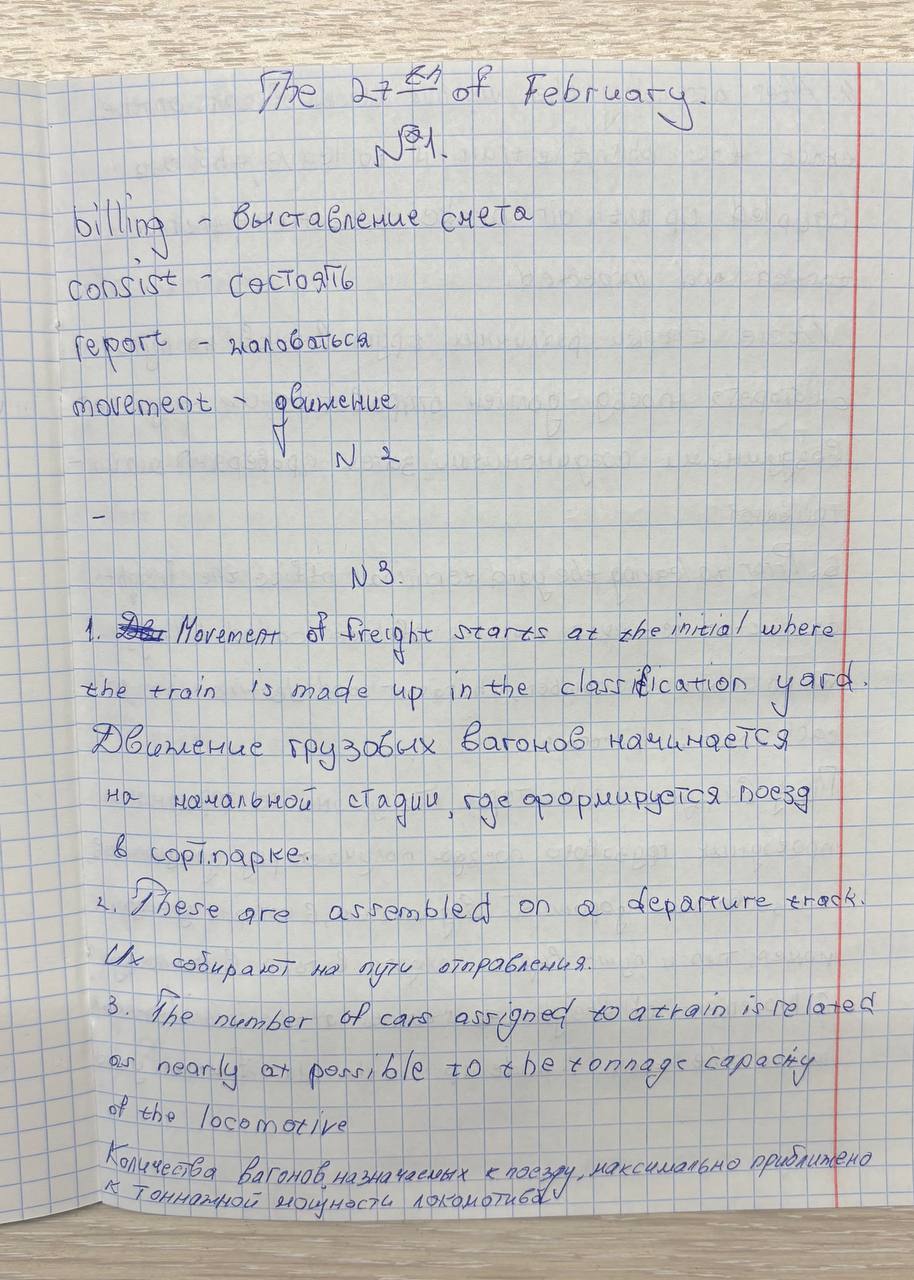 The 27th of February.
№1.
billing - выставление счета
consist - состоять
report - жаловаться
movement - движение
N 2
-
N 3.
1. Movement of freight starts at the initial where
the train is made up in the classification yard.
Движение грузовых вагонов начинается
на начальной стадии, где формируется поезд
в сорт.парке.
2. These are assembled on a departure track.
Их собирают на пути отправления.
3. The number of cars assigned to a train is related
as nearly at possible to the tonnage capacity
of the locomotive
Количества вагонов, назначаемых к поезду, максимально приближено
к тоннажной мощности локомотива